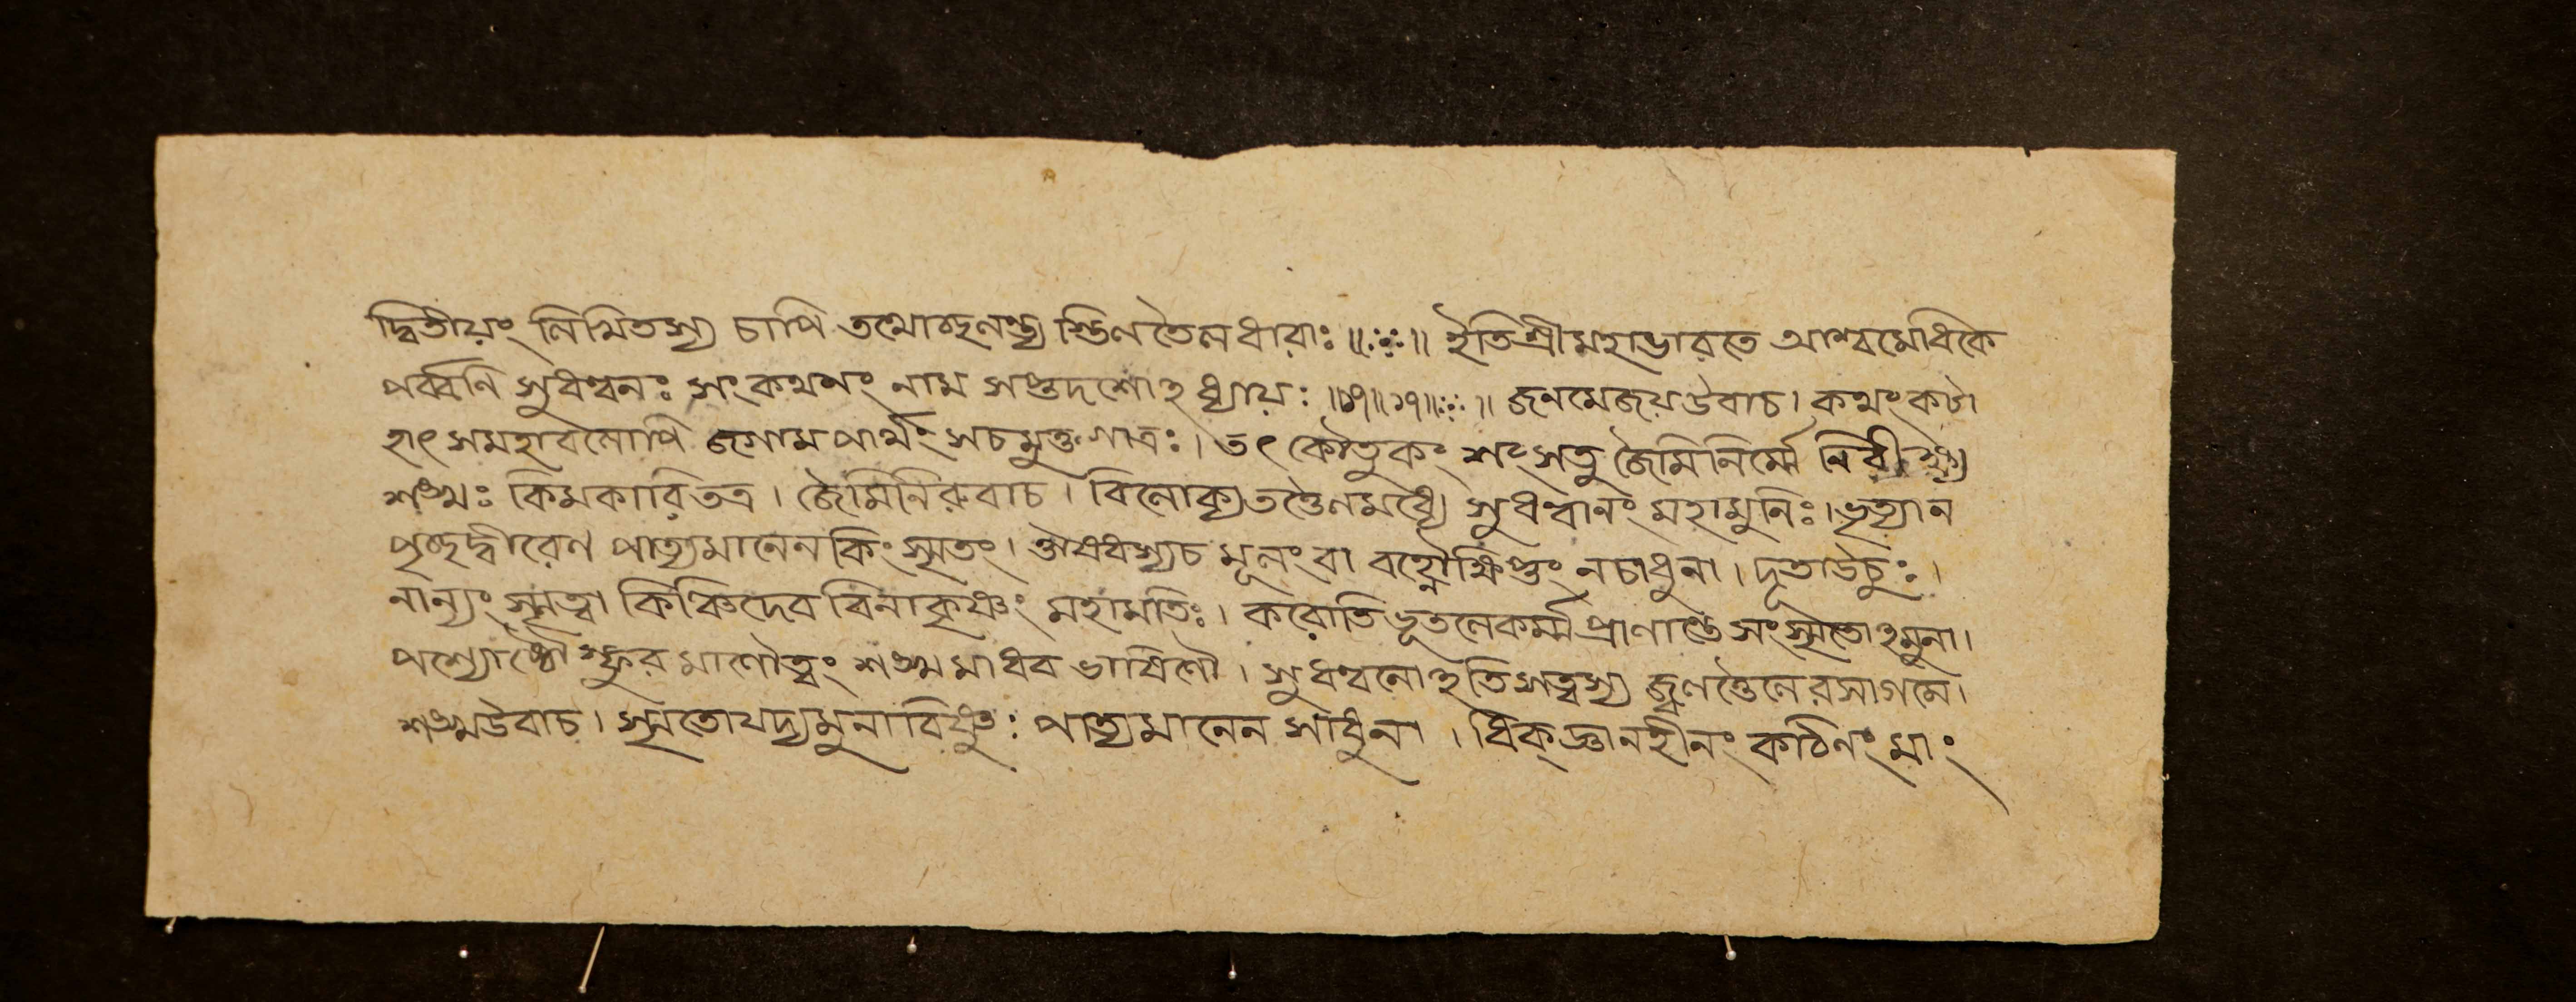 দ্বিতীয়ং লিখিতস্য চাপি তথোব্দনস্থ্য শ্চিণতৈলধারাঃ ॥ঃ০ঃ॥ ইতিশ্রীমহাভারতে আশ্বমেধিকে
পর্ব্বণি সুধন্বনঃ সংকথনং নাম সপ্তদশোঽধ্যায়ঃ ॥১৭॥১৭॥ঃ০ঃ॥ জনমেজয়উবাচ। কথংকটা
হাৎ সমহাবলোপি জগাম পার্থং সচমুক্তগাত্রঃ। তৎ কৌতুকং শংসতু জৈমিনির্মে নিরীক্ষ্য
শঙ্খঃ কিমকারি তত্র। জৈমিনিরুবাচ। বিলোক্য তত্তৈলমধ্যে সুধন্বানং মহামুনিঃ। ভৃত্যান
পৃচ্ছদ্বীরেণ পাত্যমানেন কিং স্মৃতং। ঔষধস্যচ মূলং বা বহ্নৌক্ষিপ্তং নচাধুনা। দূতাউচুঃ।
নান্যং স্মৃত্বা কিঞ্চিদেব বিনাকৃষ্ণং মহামতিঃ। করোতি ভূতলেকর্ম্ম প্রাণান্তে সংস্মৃতোঽমুনা।
পশ্যোষ্ঠৌ স্ফুরমাণৌত্বং শঙ্খমাধব ভাষিণৌ। সুধন্বনোঽতিসত্ত্বস্য জ্বলত্তৈলেরসাগমে।
শঙ্খউবাচ। স্মৃতোযদ্যমুনাবিষ্ণুঃ পাত্যমানেন সাধুনা। ধিক্জ্ঞানহীনং কঠিনং মাং